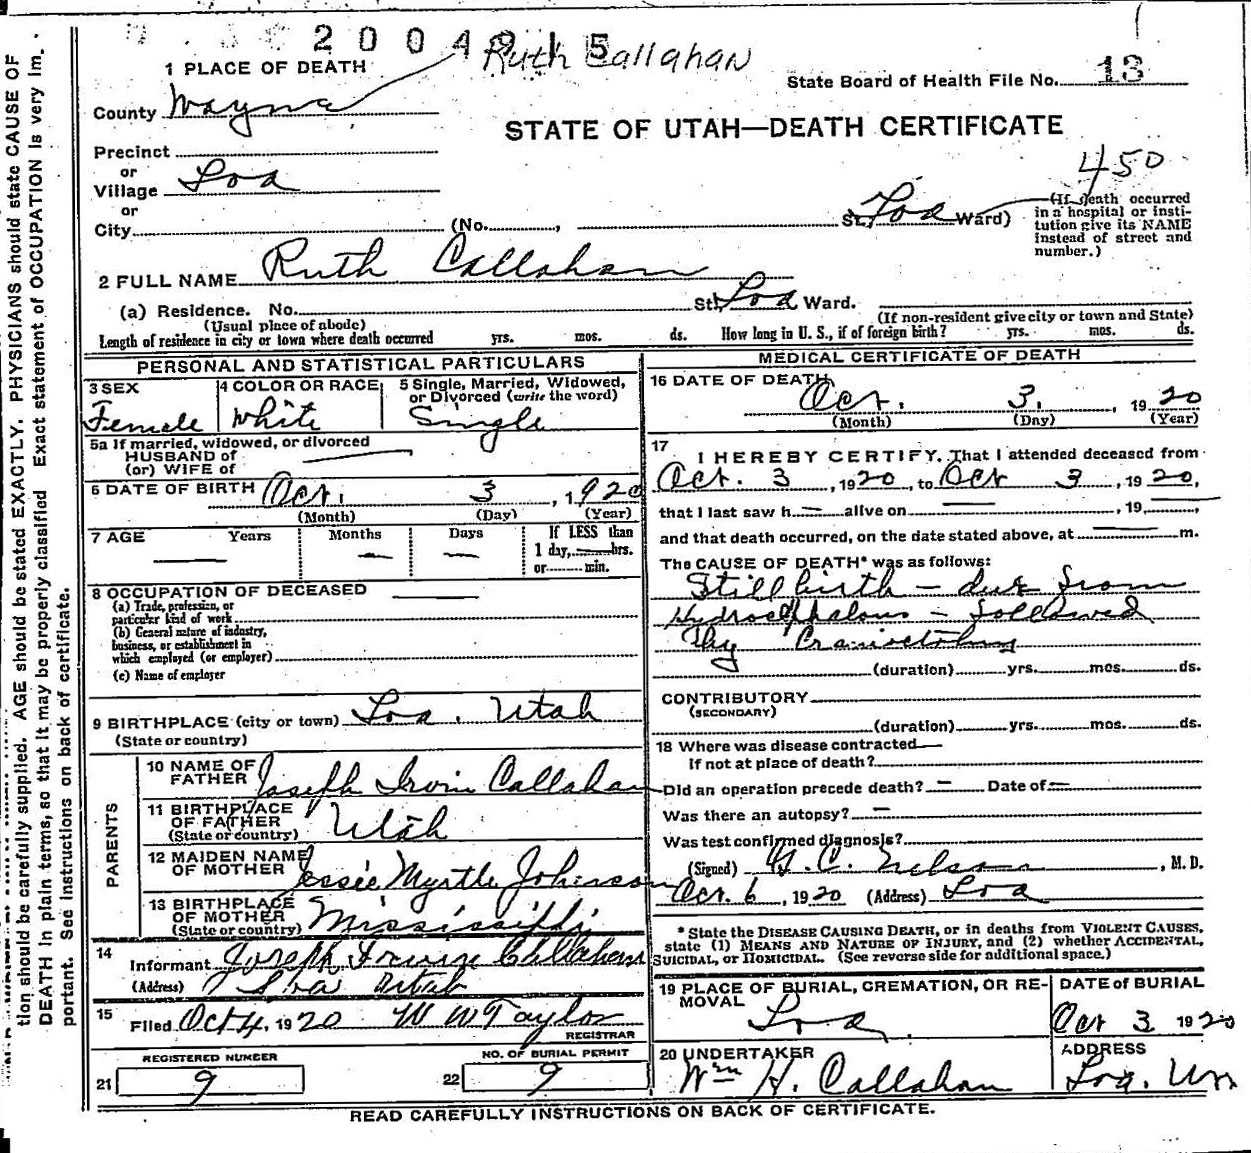 2004915
Ruth Callahan
1 PLACE OF DEATH
State Board of Health File No. 13
County Wayne
STATE OF UTAH—DEATH CERTIFICATE
Precinct
450
or
Village Loa
or
City (No. , St., Loa Ward)
(If death occurred in a hospital or institution give its NAME instead of street and number.)
2 FULL NAME Ruth Callahan
(a) Residence. No. St. Loa Ward.
(Usual place of abode) (If non-resident give city or town and State)
Length of residence in city or town where death occurred yrs. mos. ds. How long in U. S., if of foreign birth? yrs. mos. ds.
PERSONAL AND STATISTICAL PARTICULARS
3 SEX
Female
4 COLOR OR RACE
White
5 Single, Married, Widowed,
or Divorced (write the word)
Single
5a If married, widowed, or divorced
HUSBAND of
(or) WIFE of
6 DATE OF BIRTH Oct. 3, 1920
(Month) (Day) (Year)
7 AGE Years Months Days If LESS than
1 day, hrs.
or min.
8 OCCUPATION OF DECEASED
(a) Trade, profession, or
particular kind of work
(b) General nature of industry,
business, or establishment in
which employed (or employer)
(c) Name of employer
9 BIRTHPLACE (city or town) Loa, Utah
(State or country)
PARENTS
10 NAME OF
FATHER Joseph Irvin Callahan
11 BIRTHPLACE
OF FATHER
(State or country) Utah
12 MAIDEN NAME
OF MOTHER Jessie Myrtle Johnson
13 BIRTHPLACE
OF MOTHER
(State or country) Mississippi
14
Informant Joseph Irwin Callahan
(Address) Loa Utah
15
Filed Oct 4, 1920 W W Taylor
REGISTRAR
REGISTERED NUMBER
21 9
NO. OF BURIAL PERMIT
22 9
MEDICAL CERTIFICATE OF DEATH
16 DATE OF DEATH
Oct. 3, 1920
(Month) (Day) (Year)
17
I HEREBY CERTIFY, That I attended deceased from
Oct. 3, 1920, to Oct 3, 1920,
that I last saw h— alive on —, 19—,
and that death occurred, on the date stated above, at — m.
The CAUSE OF DEATH* was as follows:
Stillbirth — due from
Hydrocephalous — followed
by Craniotomy
(duration) yrs. mos. ds.
CONTRIBUTORY
(SECONDARY)
(duration) yrs. mos. ds.
18 Where was disease contracted—
if not at place of death?
Did an operation precede death? — Date of —
Was there an autopsy? —
Was test confirmed diagnosis?
(Signed) Nelson, M. D.
Oct. 6, 1920 (Address) Loa
* State the DISEASE CAUSING DEATH, or in deaths from VIOLENT CAUSES,
state (1) MEANS AND NATURE OF INJURY, and (2) whether ACCIDENTAL,
SUICIDAL, or HOMICIDAL. (See reverse side for additional space.)
19 PLACE OF BURIAL, CREMATION, OR RE-
MOVAL
Loa.
DATE of BURIAL
Oct 3 1920
20 UNDERTAKER
Wm H. Callahan
ADDRESS
Loa,
READ CAREFULLY INSTRUCTIONS ON BACK OF CERTIFICATE.
tion should be carefully supplied. AGE should be stated EXACTLY. PHYSICIANS should state CAUSE OF
DEATH in plain terms, so that it may be properly classified Exact statement of OCCUPATION is very im-
portant. See instructions on back of certificate.